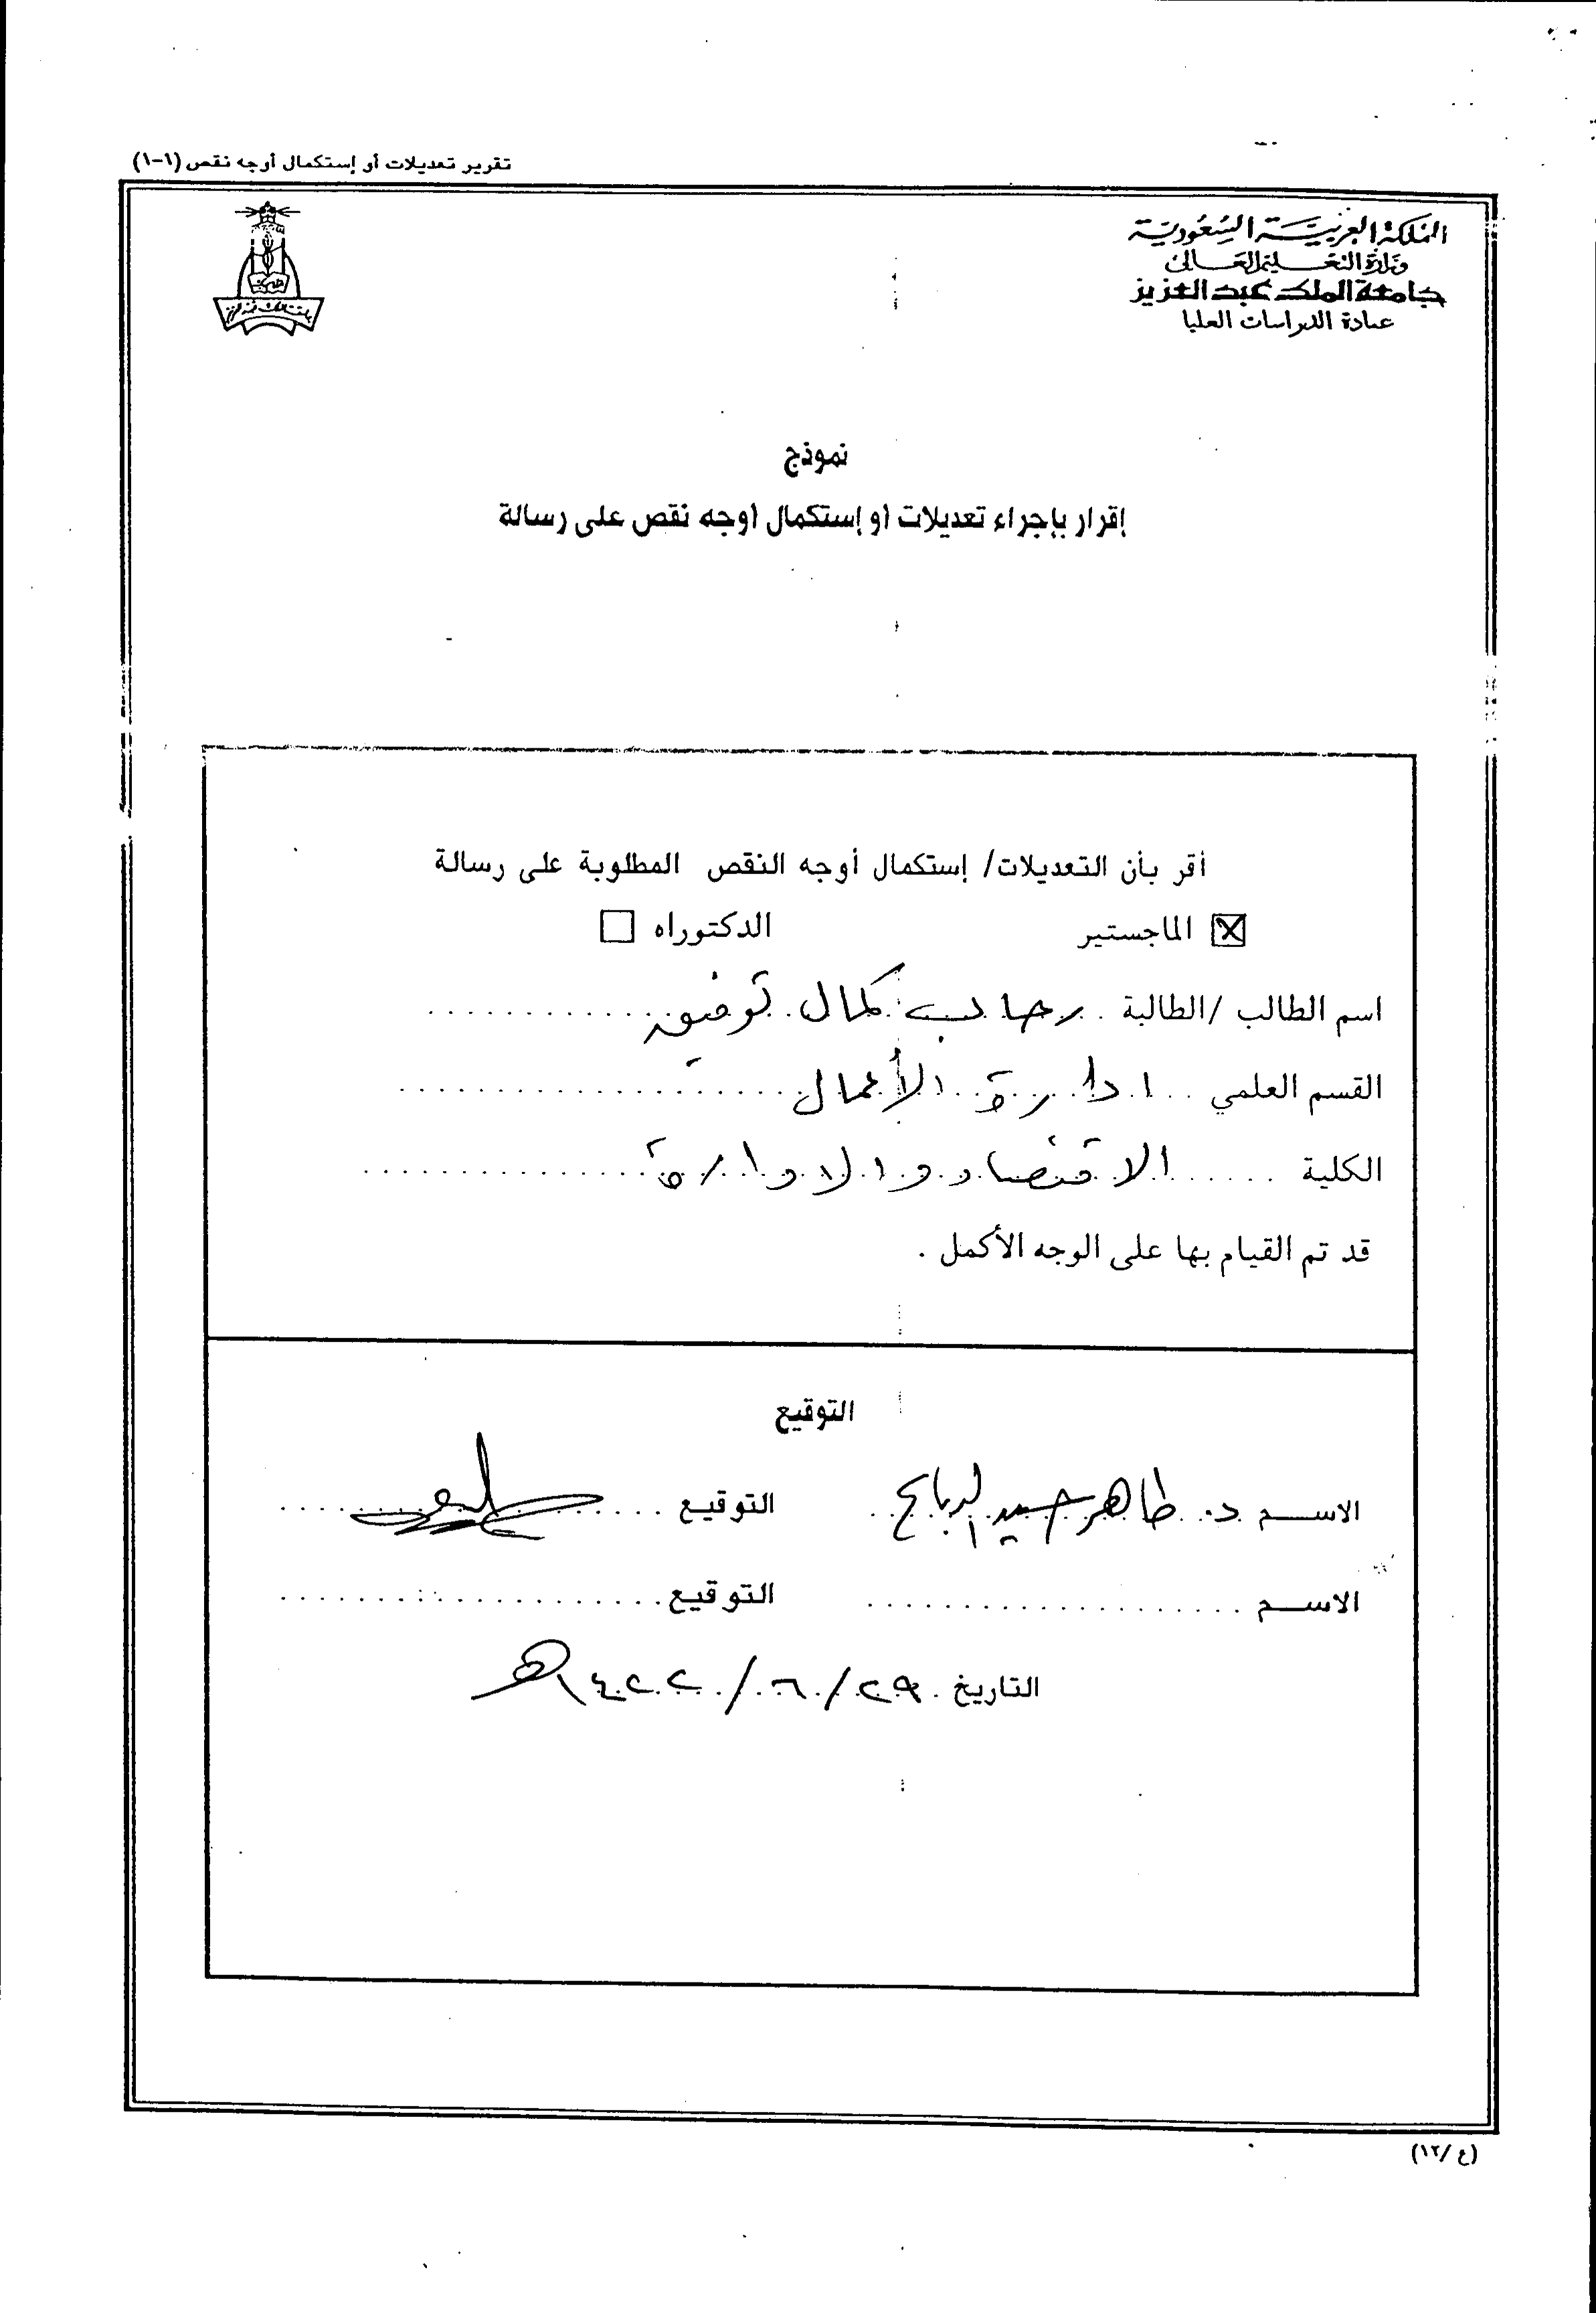 تقرير تعديلات أو إستكمال أوجه نقص (١-١)
المملكة العربية السعودية
وزارة التعليم العالي
جامعة الملك عبد العزيز
عمادة الدراسات العليا
نموذج
إقرار بإجراء تعديلات أو إستكمال أوجه نقص على رسالة
أقر بأن التعديلات/ إستكمال أوجه النقص المطلوبة على رسالة
☒ الماجستير □ الدكتوراه
اسم الطالب /الطالبة رحاب كمال توفيق
القسم العلمي ادارة الأعمال
الكلية الاقتصاد والادارة
قد تم القيام بها على الوجه الأكمل .
التوقيع
الاسم د. طاهر حسين التوقيع
الاسم التوقيع
التاريخ ٢٩/٦/١٤٢٢هـ
(ع /١٢)